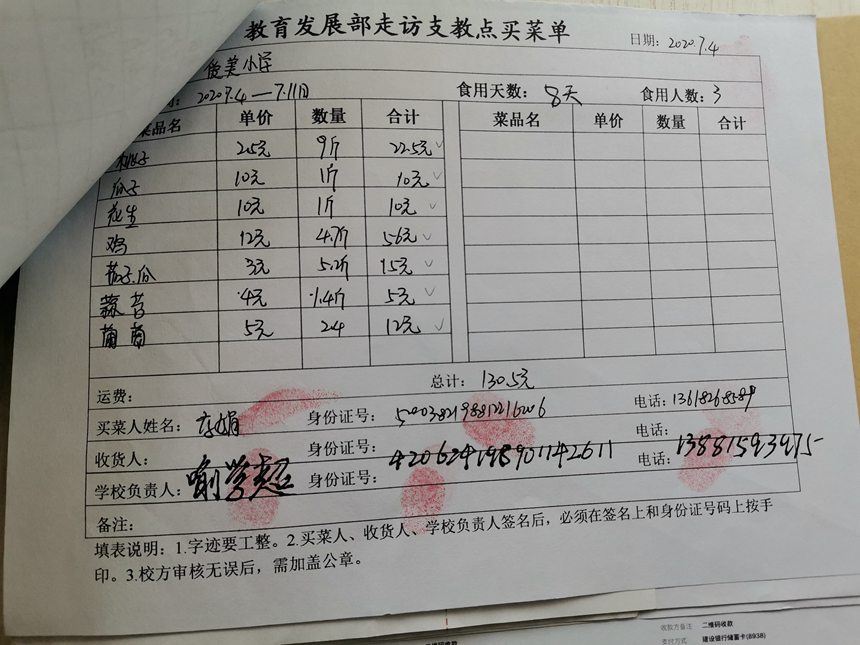 教育发展部走访支教点买菜单 日期：2020.7.4
俊美小学
2020 7.4—7.11日 食用天数：8天 食用人数：3
菜品名 单价 数量 合计 菜品名 单价 数量 合计
桃子 2.5元 9斤 22.5元
瓜子 10元 1斤 10元
花生 10元 1斤 10元
鸡 12元 4.7斤 56元
茄子.瓜 3元 5.2斤 15元
蒜苔 4元 1.4斤 5元
葡萄 5元 2.4 12元
运费： 总计：130.5元
买菜人姓名： 娟 身份证号： 电话：13618268589
收货人： 身份证号： 电话：
学校负责人：喻学超 身份证号：420624198901142611 电话：13881593975
备注：
填表说明：1.字迹要工整。2.买菜人、收货人、学校负责人签名后，必须在签名上和身份证号码上按手
印。3.校方审核无误后，需加盖公章。
收款方备注 二维码收款
支付方式 建设银行储蓄卡(8938)
二维码收款